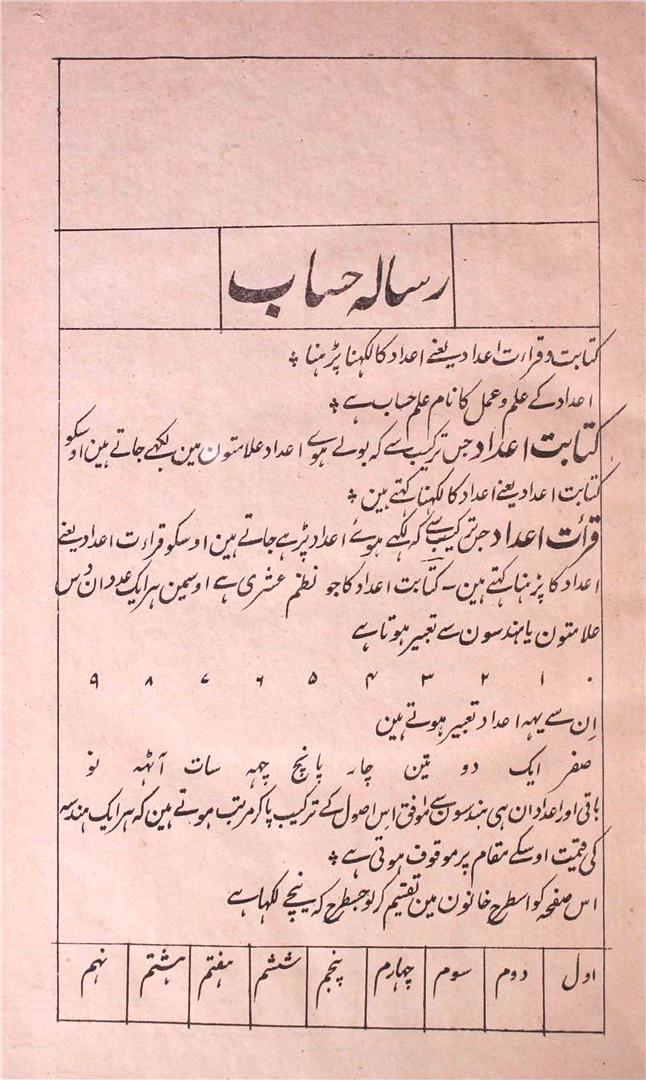 رسالہ حساب
کتابت و قراءت اعداد یعنے اعداد کا لکہنا پڑہنا ⁂
اعداد کے علم و عمل کا نام علم حساب ہے ⁂
کتابت اعداد جس ترکیب سے کہ بولے ہوے اعداد علامتون مین لکہے جاتے ہین اوسکو
کتابت اعداد یعنے اعداد کا لکہنا کہتے ہین ⁂
قرأت اعداد جس ترکیب سے کہ لکہے ہوئے اعداد پڑہے جاتے ہین اوسکو قراءت اعداد یعنے
اعداد کا پڑہنا کہتے ہین ۔ کتابت اعداد کا جو نظم عشری ہے اوسمین ہر ایک عدد ان دس
علامتون یا ہندسون سے تعبیر ہوتا ہے
۰ ۱ ۲ ۳ ۴ ۵ ۶ ۷ ۸ ۹
اِن سے یہہ اعداد تعبیر ہوتے ہین
صفر ایک دو تین چار پانچ چہہ سات آٹہہ نو
باقی اور اعداد ان ہی ہندسون سے موافق اس اصول کے ترکیب پاکر مرتب ہوتے ہین کہ ہر ایک ہندسہ
کی قیمت اوسکے مقام پر موقوف ہوتی ہے ⁂
اس صفحہ کو اسطرح خانون مین تقسیم کرلو جسطرح کہ نیچے لکہا ہے
اول دوم سوم چہارم پنجم ششم ہفتم ہشتم نہم